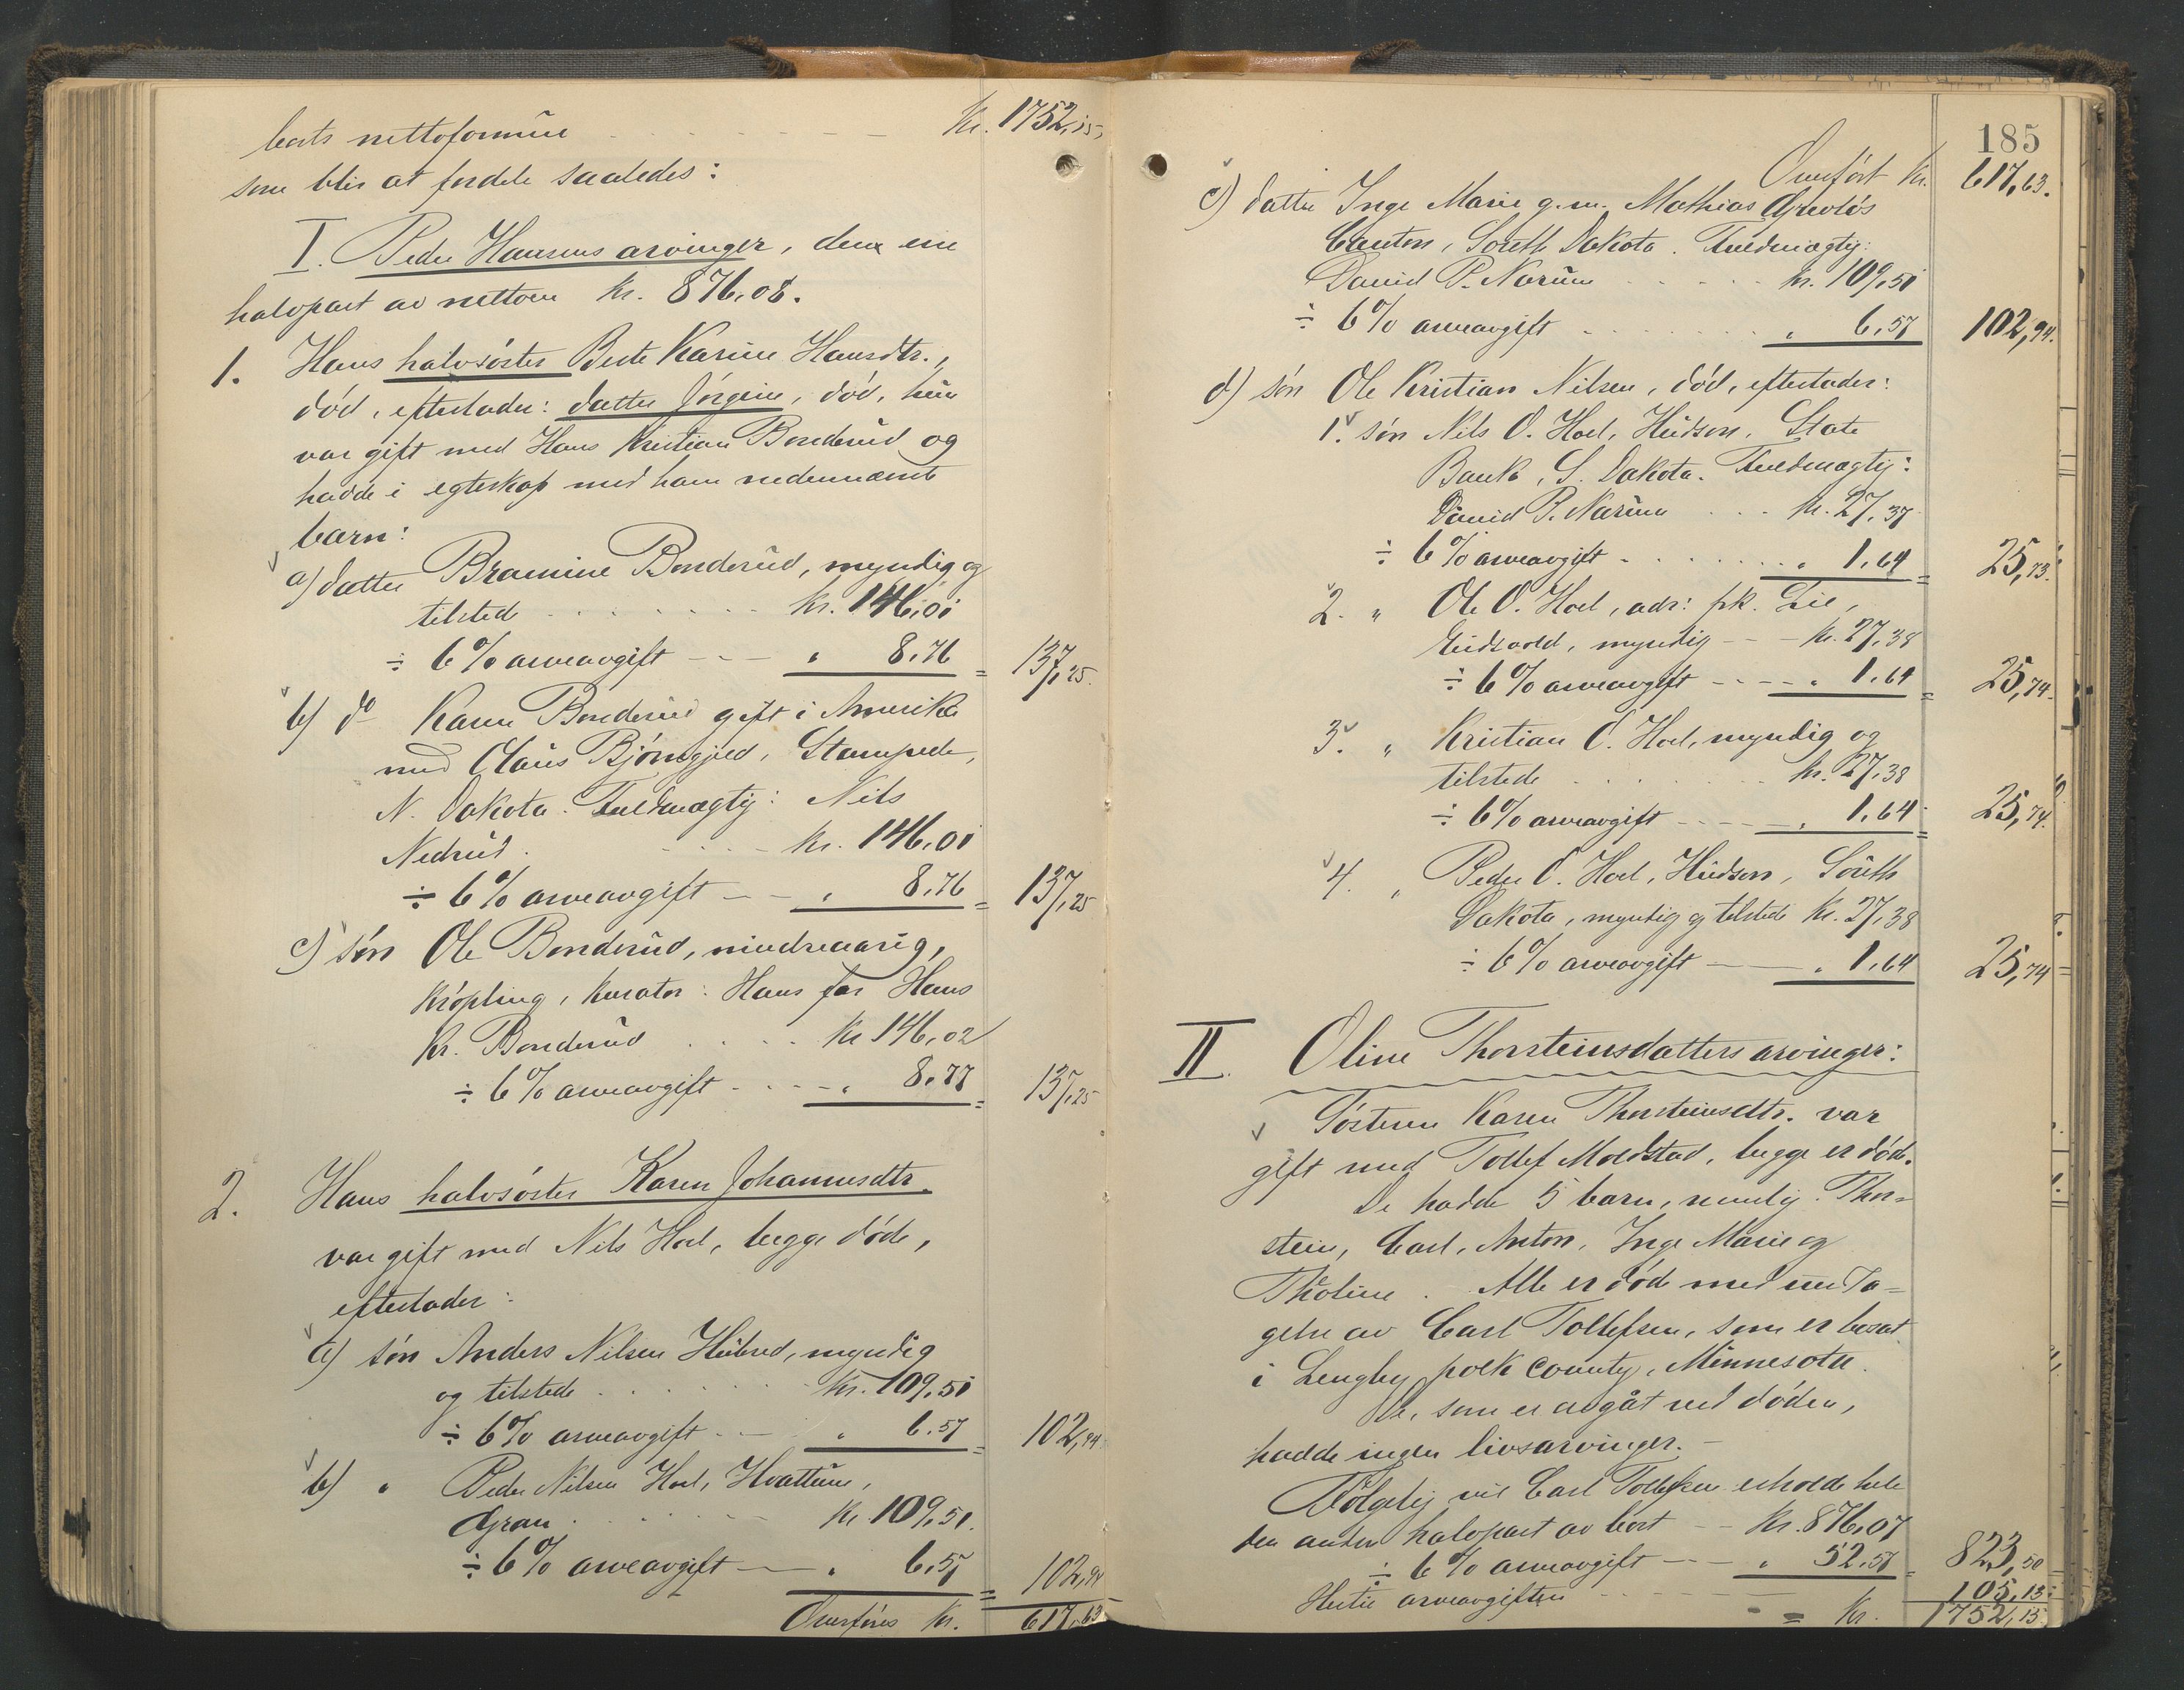 boets nettoformue - - - - Kr. 1752,15,
som blir at fordele saaledes:
I. Peder Hansens arvinger, den ene
halvpart av nettoen Kr. 876,08.
1. Hans halvsøster Berte Karine Hansdtr.,
død, efterlader: datter Jørgine, død, hun
var gift med Hans Kristian Bonderud og
hadde i egteskap med ham nedennævnte
barn:
a) datter Bramine Bonderud, myndig og
tilstede - - - Kr. 146,01
÷ 6% arveavgift - - „ 8,76 = 137,25.
b) do Karen Bonderud gift i Amerika
med Olaus Bjørngjeld, Stampede,
N. Dakota. Fuldmægtig: Nils
Nedrud. - - Kr. 146,01
÷ 6% arveavgift - - „ 8,76 = 137,25
c) søn Ole Bonderud, mindreaarig,
krøpling, kurator: Hans far Hans
Kr. Bonderud . . . . Kr 146,02
÷ 6% arveavgift - - - „ 8,77 = 137,25
2. Hans halvsøster Karen Johannesdtr.
var gift med Nils Hoel, begge døde,
efterlader:
a) søn Anders Nilsen Hubred, myndig
og tilstede . . . . Kr. 109,51
÷ 6% arveavgift - - „ 6,57 = 102,94
b) „ Peder Nilsen Hoel, Hvattum,
Gran . . . . Kr. 109,51.
÷ 6% arveavgift - „ 6,57 = 102,94
Overføres Kr. 617,63
185
Overført Kr. 617,63.
c) datter Inge Marie g.m. Mathias
Canton, South Dakota. Fuldmægtig:
David P. Narum . . . . Kr. 109,51
÷ 6% arveavgift . . . . „ 6,57 102,94.
d) søn Ole Kristian Nilsen, død, efterlader:
1. søn Nils O. Hoel, Hudson, State
Bank, S. Dakota. Fuldmægtig:
David P. Narum . . . Kr. 27,37
÷ 6% arveavgift . . . . „ 1,64 = 25,73.
2. „ Ole O. Hoel, adr: frk. Lie,
Eidsvold, myndig - - Kr. 27,38
÷ 6% arveavgift - - - „ 1,64 = 25,74.
3. „ Kristian O. Hoel, myndig og
tilstede . . . . Kr. 27,38
÷ 6% arveavgift - - - „ 1,64 = 25,74.
4. „ Peder O. Hoel, Hudson, South
Dakota, myndig og tilstede Kr. 27,38
÷ 6% arveavgift - - „ 1,64 25,74
II. Oline Thorsteinsdatters arvinger:
Søsteren Karen Thorsteinsdtr. var
gift med Tollef Moldstad, begge er død.
De hadde 5 barn, nemlig: Thor=
stein, Carl, Anton, Inge Marie og
Tholine. Alle er død med unta=
gelse av Carl Tollefsen, som er bosat
i Lengby polk county, Minnesota.
De, som er avgåt ved døden,
hadde ingen livsarvinger. -
Følgelig vil Carl Tollefsen erholde hele
den anden halvpart av boet - - Kr. 876,07
÷ 6% arveavgift - - „ 52,57 = 823,50
Hertil arveavgiften - - - 105,13:
= Kr. 1752,15